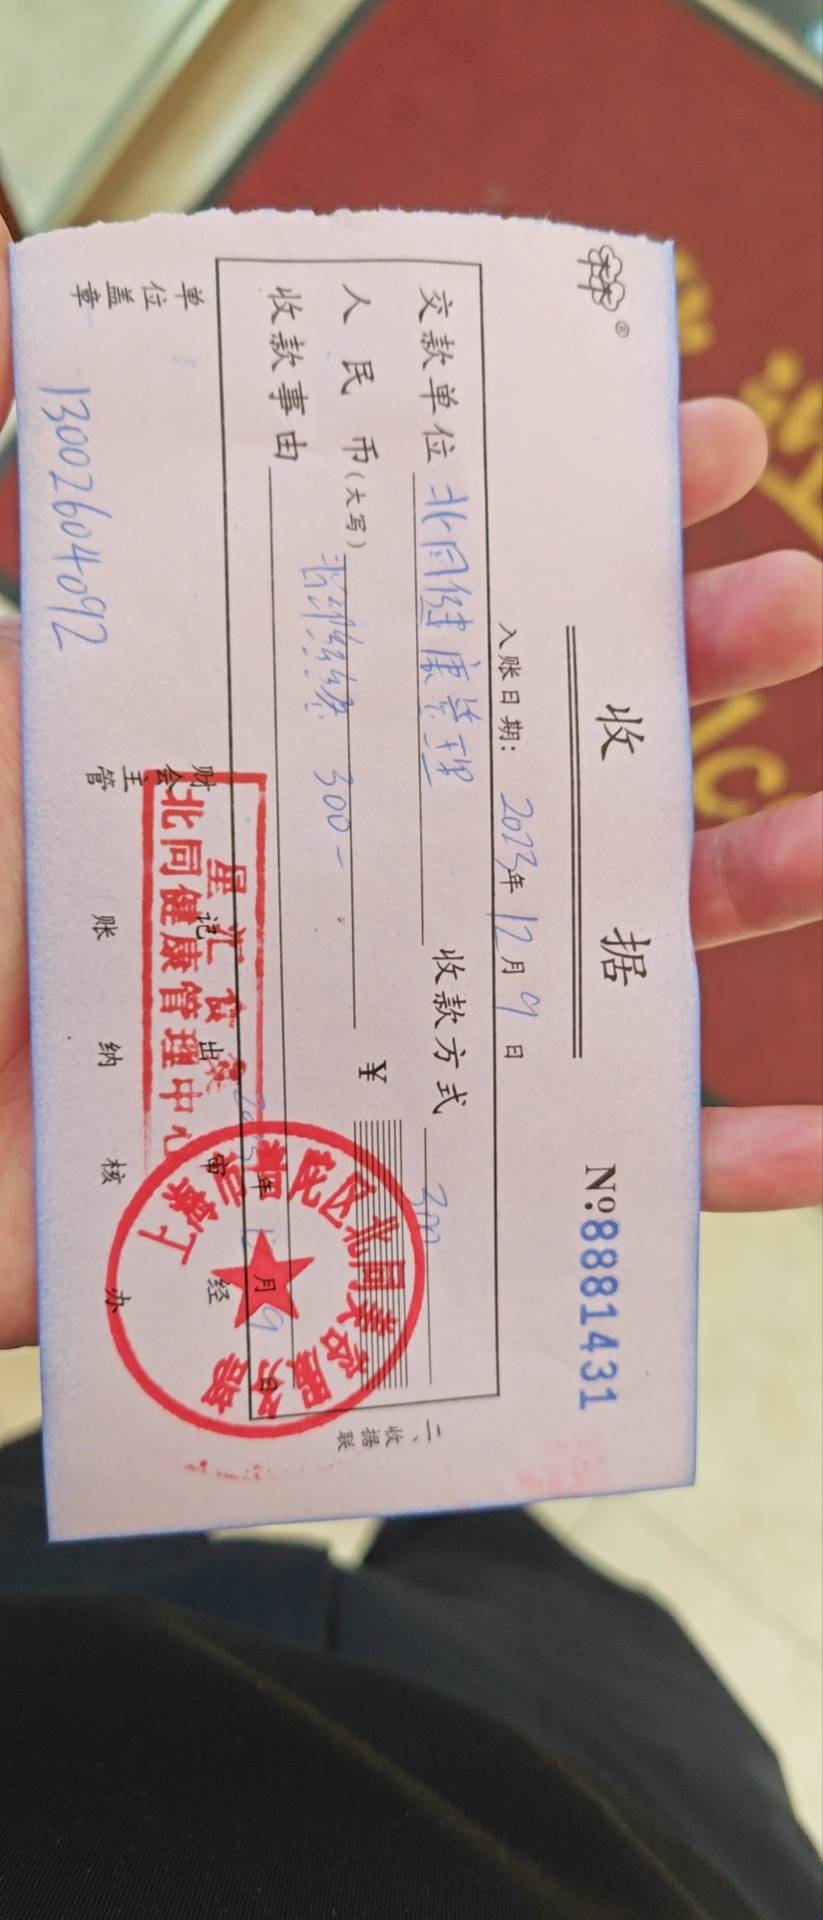 收据
№:8881431
入账日期: 2023年12月9日
交款单位 北同健康管理 收款方式 300
人民币(大写) 300- ¥
收款事由
2023年12月9日
二、收据联
单位盖章 财会主管 记账 出纳 审核 经办
13002604092
星汇
北同健康管理中心
区北同美容